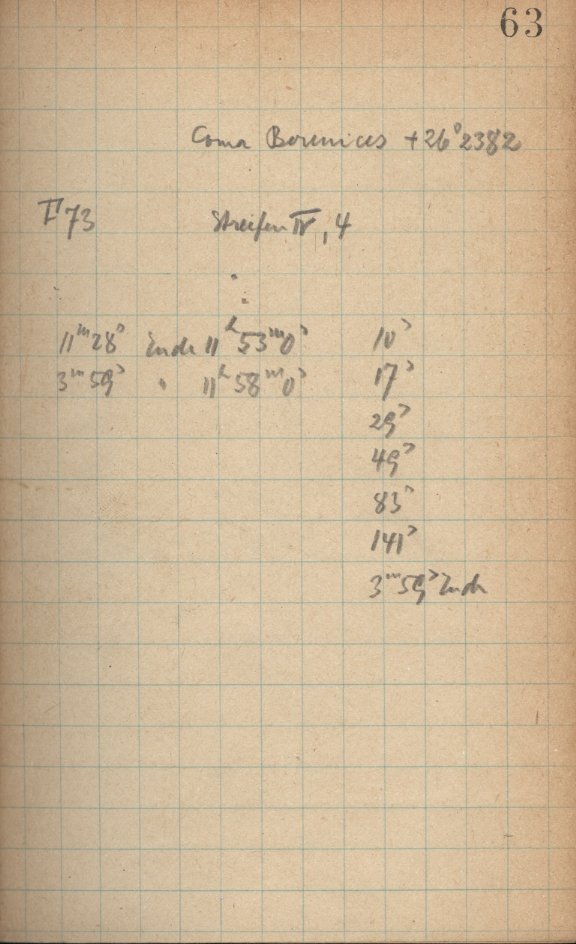 63
Coma Berenices +26°2382
II 73 Streifen IV, 4
11ᵐ28ˢ Ende 11ʰ53ᵐ0ˢ 10ˢ
3ᵐ59ˢ " 11ʰ58ᵐ0ˢ 17ˢ
29ˢ
49ˢ
83ˢ
141ˢ
3ᵐ59ˢ Ende